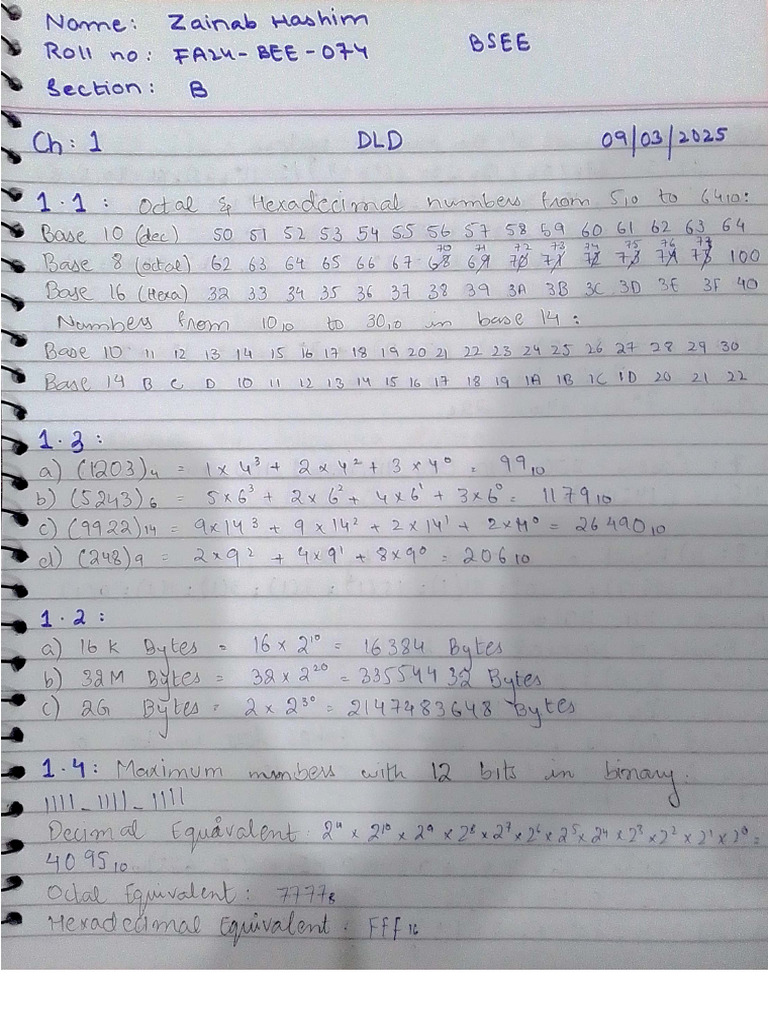 Name: Zainab Hashim
Roll no: FA24-BEE-074 BSEE
Section: B
Ch: 1 DLD 09/03/2025
1.1: Octal & Hexadecimal numbers from 5,0 to 64,0:
Base 10 (dec) 50 51 52 53 54 55 56 57 58 59 60 61 62 63 64
70 71 72 73 74 75 76 77
Base 8 (octal) 62 63 64 65 66 67 68 69 70 71 72 73 74 75 100
Base 16 (Hexa) 32 33 34 35 36 37 38 39 3A 3B 3C 3D 3E 3F 40
Numbers from 10,0 to 30,0 in base 14:
Base 10 11 12 13 14 15 16 17 18 19 20 21 22 23 24 25 26 27 28 29 30
Base 14 B C D 10 11 12 13 14 15 16 17 18 19 1A 1B 1C 1D 20 21 22
1.3:
a) (1203)₄ = 1×4³ + 2×4² + 3×4⁰ = 99₁₀
b) (5243)₆ = 5×6³ + 2×6² + 4×6¹ + 3×6⁰ = 1179₁₀
c) (9922)₁₄ = 9×14³ + 9×14² + 2×14¹ + 2×14⁰ = 26490₁₀
d) (248)₉ = 2×9² + 4×9¹ + 8×9⁰ = 206₁₀
1.2:
a) 16 K Bytes = 16 × 2¹⁰ = 16384 Bytes
b) 32M Bytes = 32 × 2²⁰ = 33554432 Bytes
c) 2G Bytes = 2 × 2³⁰ = 2147483648 Bytes
1.4: Maximum numbers with 12 bits in binary.
1111_1111_1111
Decimal Equavalent: 2¹¹ × 2¹⁰ × 2⁹ × 2⁸ × 2⁷ × 2⁶ × 2⁵ × 2⁴ × 2³ × 2² × 2¹ × 2⁰ =
4095₁₀
Octal Equivalent: 7777₈
Hexadecimal Equivalent: Fff₁₆